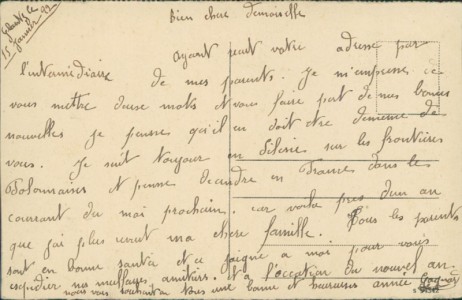 le
15 janvier 22
Bien chere demoiselle
Ayant reçut votre adresse par
l'intermédiaire de mes parents. Je m'empresse de
vous mettre deuse mots et vous faire part de mes bonnes
nouvelles je penses qu'il en doit etre dememe de
vous. Je suit toujour en Silesie sur les frontieres
Polonnaises et pense decendre en France dans le
courant du moi prochain. car voila pres d'un an
que j'ai plus revut ma chere famille. Tous les parents
sont en bonne santer et ce joigne a moi pour vous
esqudier nos meilleures amitiers. et a l'occation du nouvel an.
nous vous souhaitons tous une bonne et heureuses année